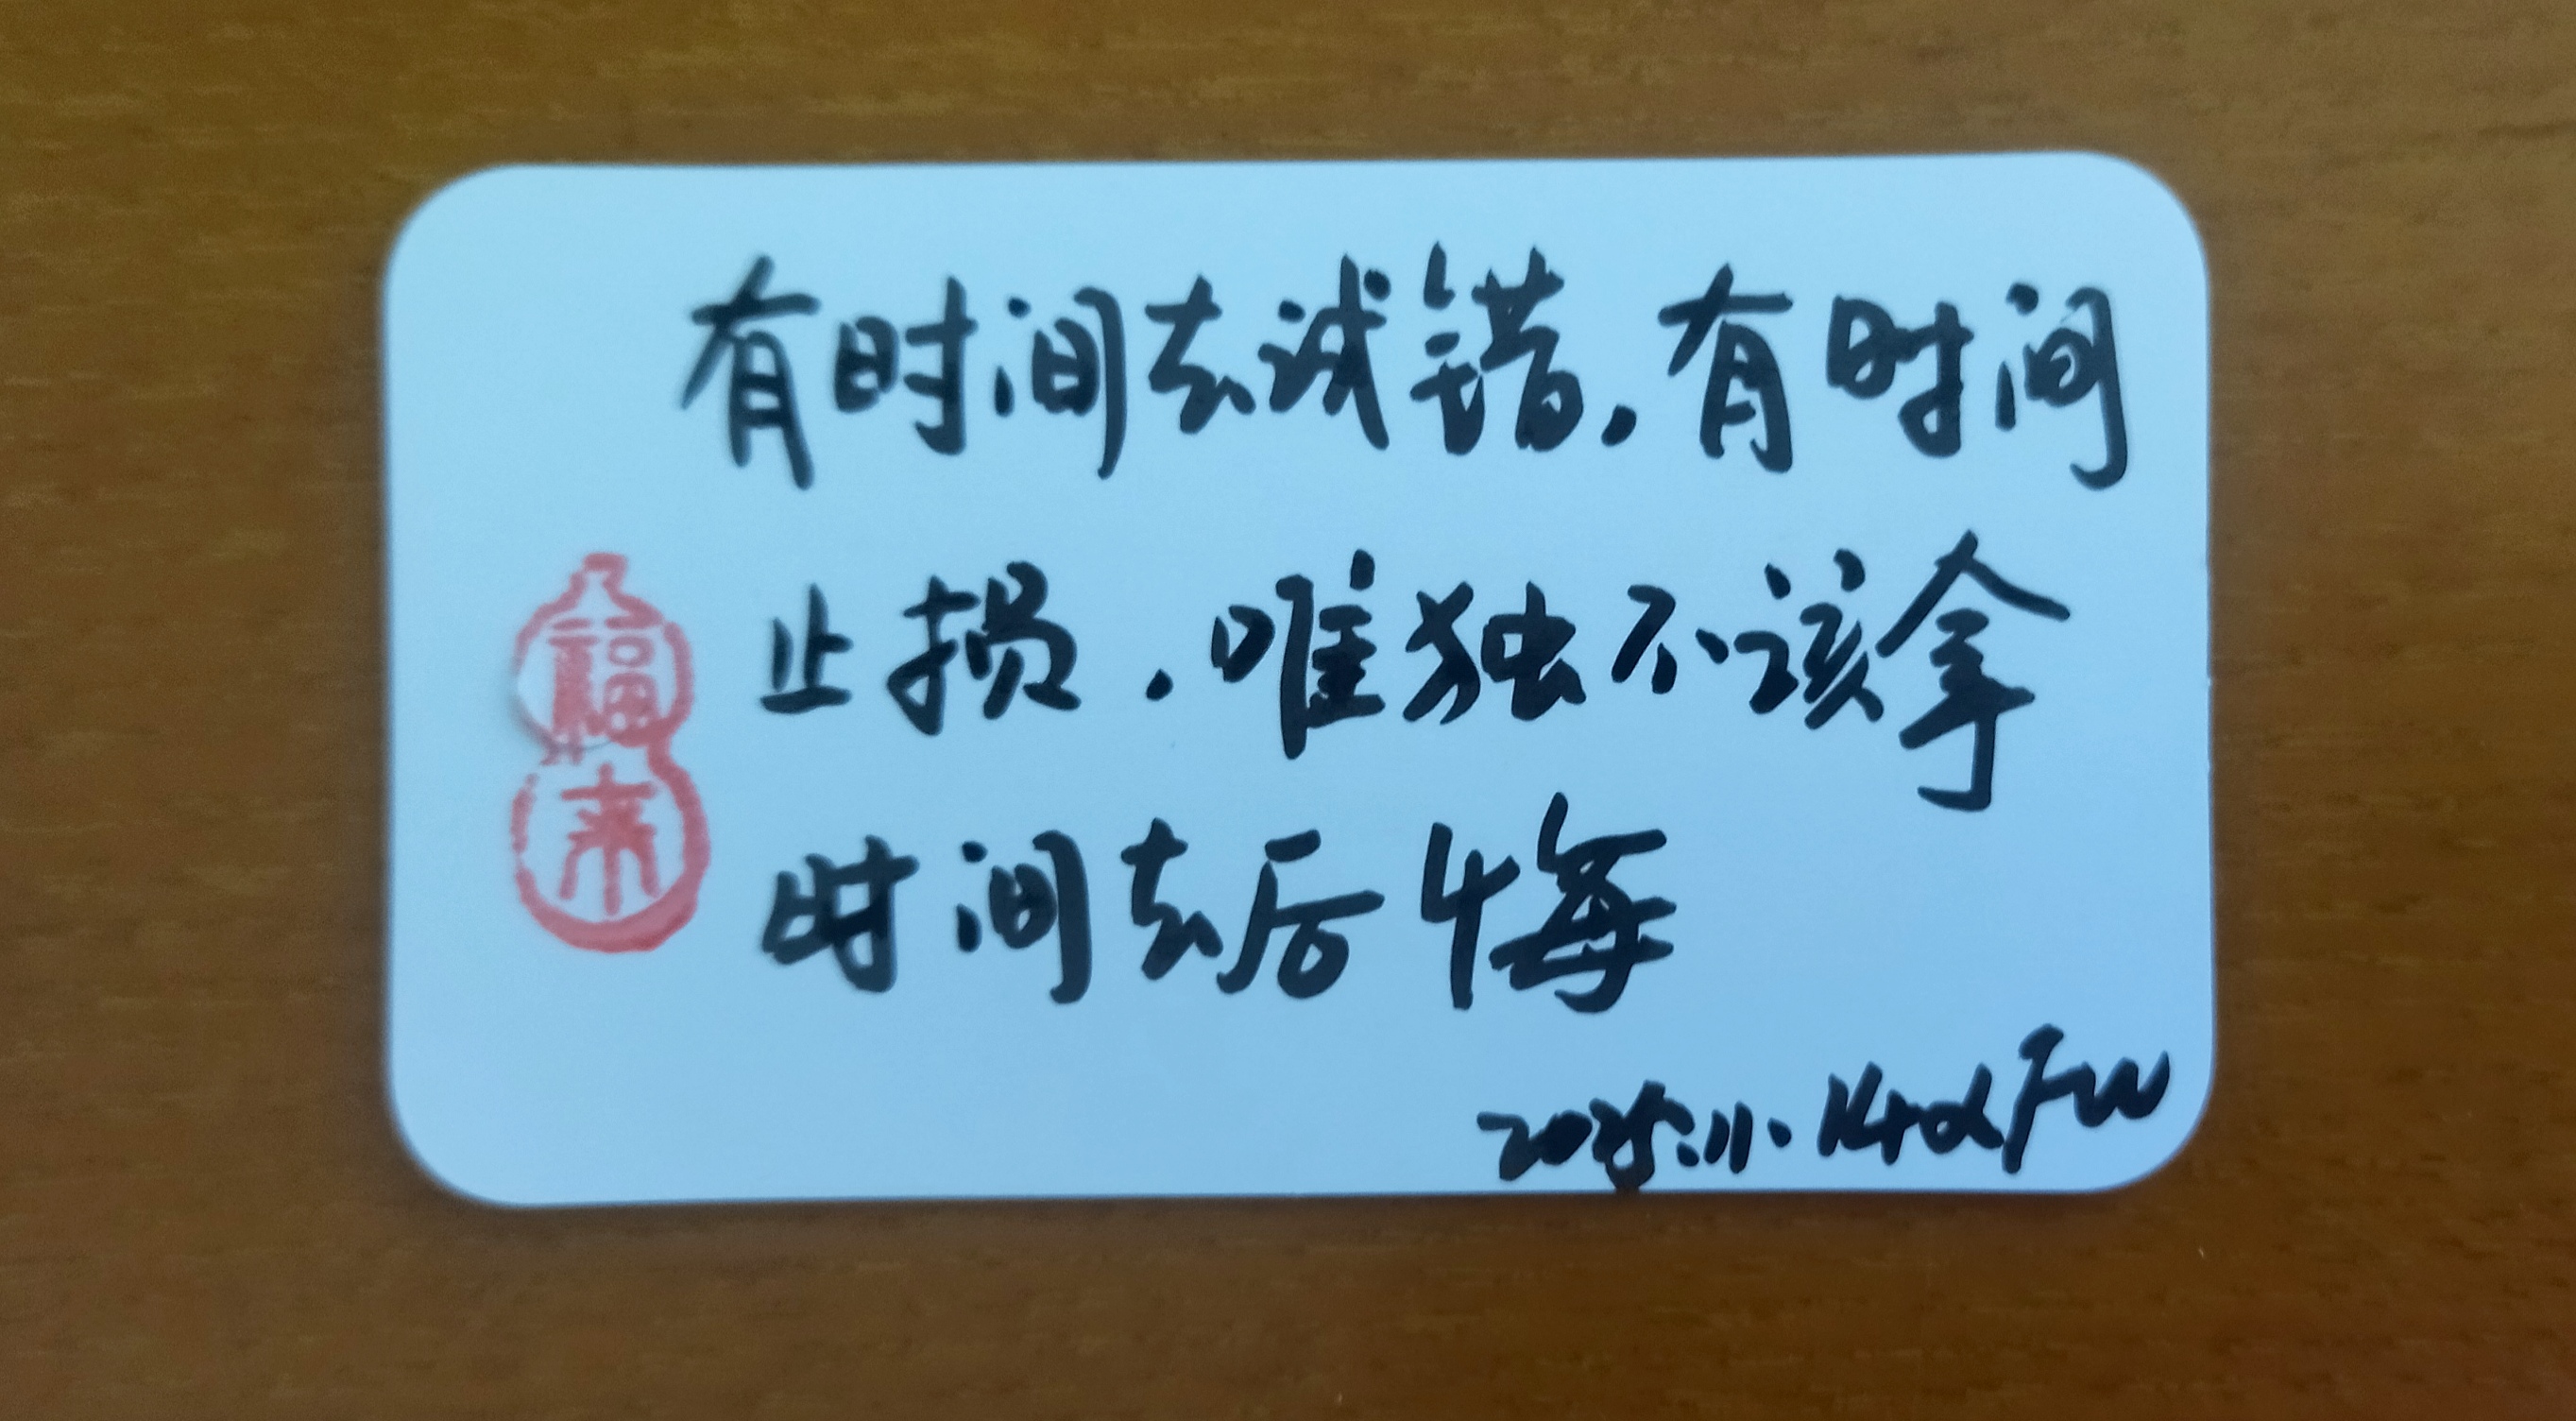 有时间去试错，有时间
止损，唯独不该拿
时间去后悔
福来
2025.11.14